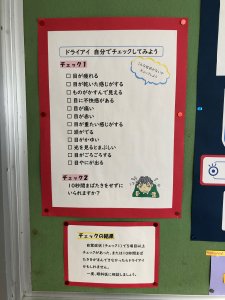 ドライアイ 自分でチェックしてみよう
チェック1
□ 目が疲れる
□ 目が乾いた感じがする
□ ものがかすんで見える
□ 目に不快感がある
□ 目が痛い
□ 目が赤い
□ 目が重たい感じがする
□ 涙がでる
□ 目がかゆい
□ 光を見るとまぶしい
□ 目がごろごろする
□ 目やにが出る
チェック2
10秒間まばたきをせずに
いられますか?
チェックの結果
自覚症状(チェック1)で5項目以上
チェックがあった、または10秒間まば
たきをがまんできなかったらドライアイ
かもしれません。
一度、眼科医に相談しましょう。